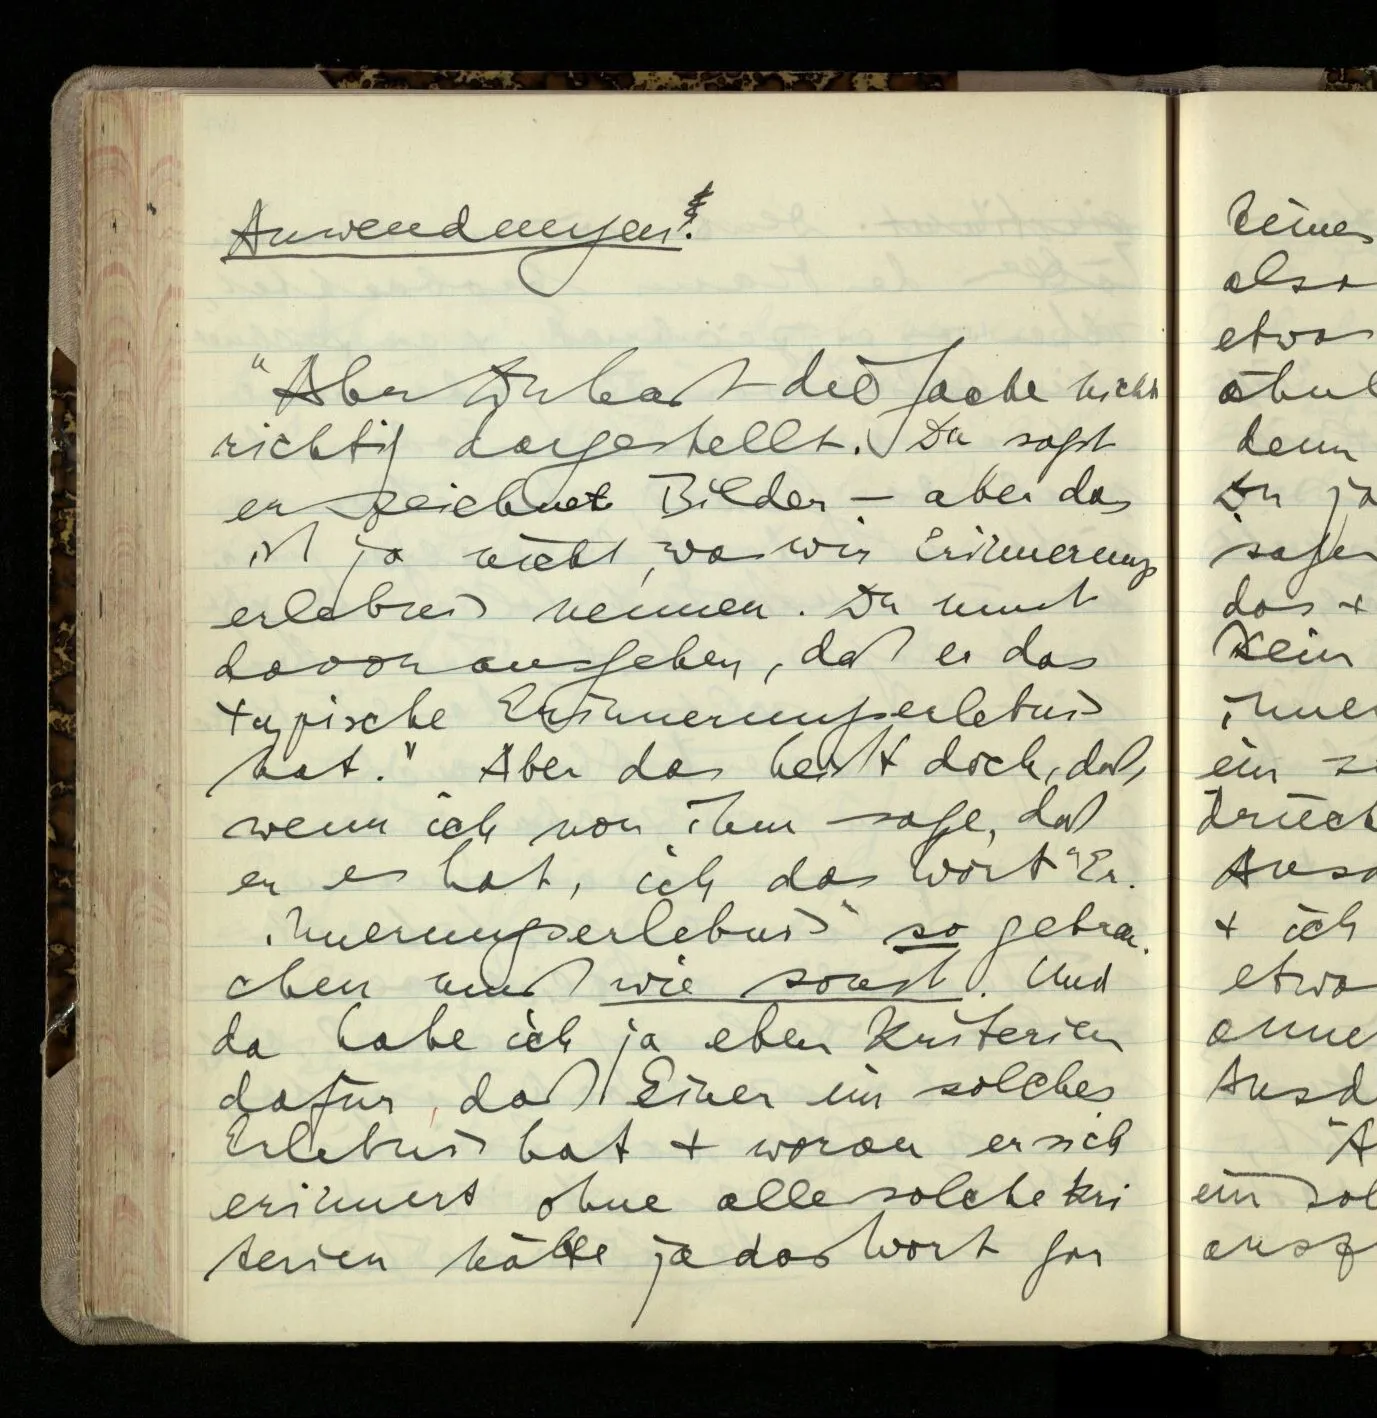 Anwendungen?
"Aber Du hast die Sache nicht
richtig dargestellt. Du sagst
er zeichnet Bilder – aber das
ist ja nicht, was wir Erinnerungs
erlebnis nennen. Du must
davon ausgehen, daß er das
typische Erinnerungserlebnis
hat." Aber das heißt doch, daß,
wenn ich von ihm sage, daß
er es hat, ich das Wort "Er-
innerungserlebnis" so gebrau-
chen muß wie sonst. Und
da habe ich ja eben Kriterien
dafür, daß Einer ein solches
Erlebnis hat + woran er sich
erinnert ohne alle solche Kri
terien hätte ja das Wort gar
keine
also
etwa
denn
Du ja
sagen
das +
kein
ein
+ ich
etwa